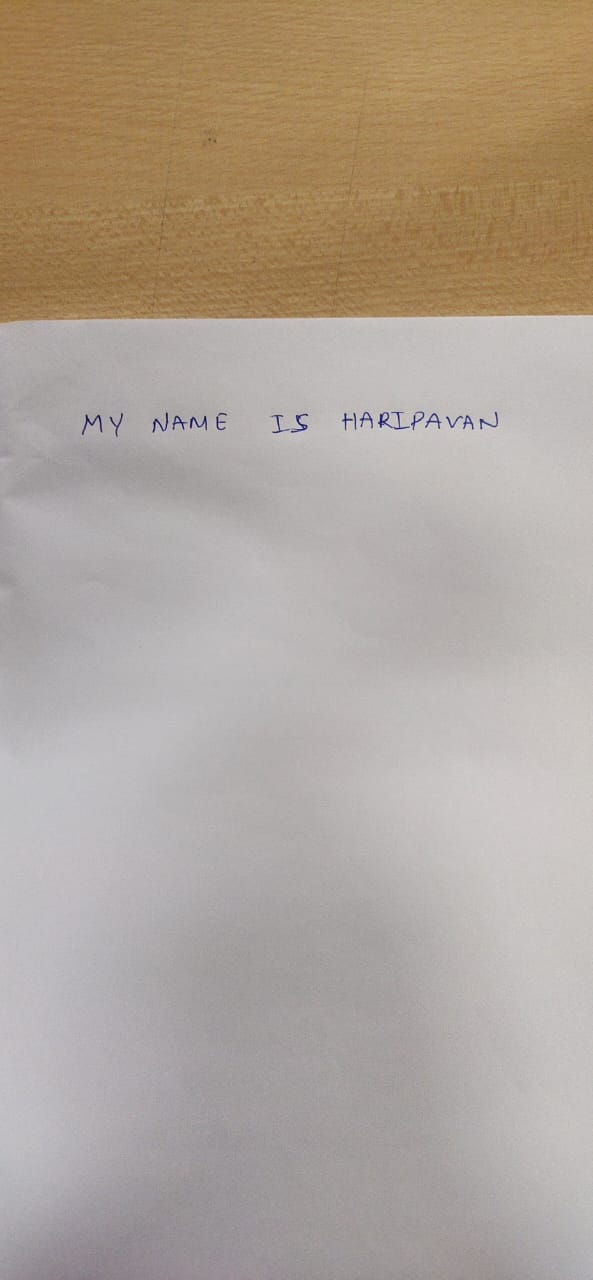 MY NAME IS HARIPAVAN